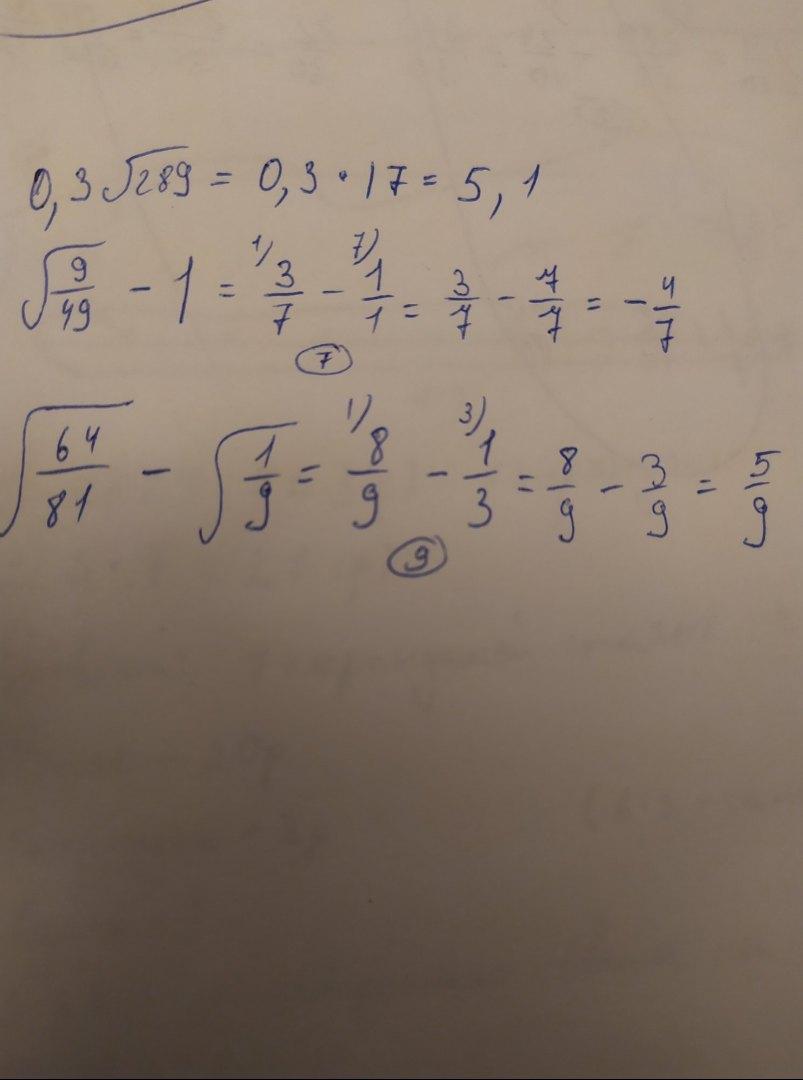 0,3√289 = 0,3 · 17 = 5,1
√(9/49) - 1 = 1) 3/7 - 7) 1/1 = 3/7 - 7/7 = - 4/7
7
√(64/81) - √(1/9) = 1) 8/9 - 3) 1/3 = 8/9 - 3/9 = 5/9
9